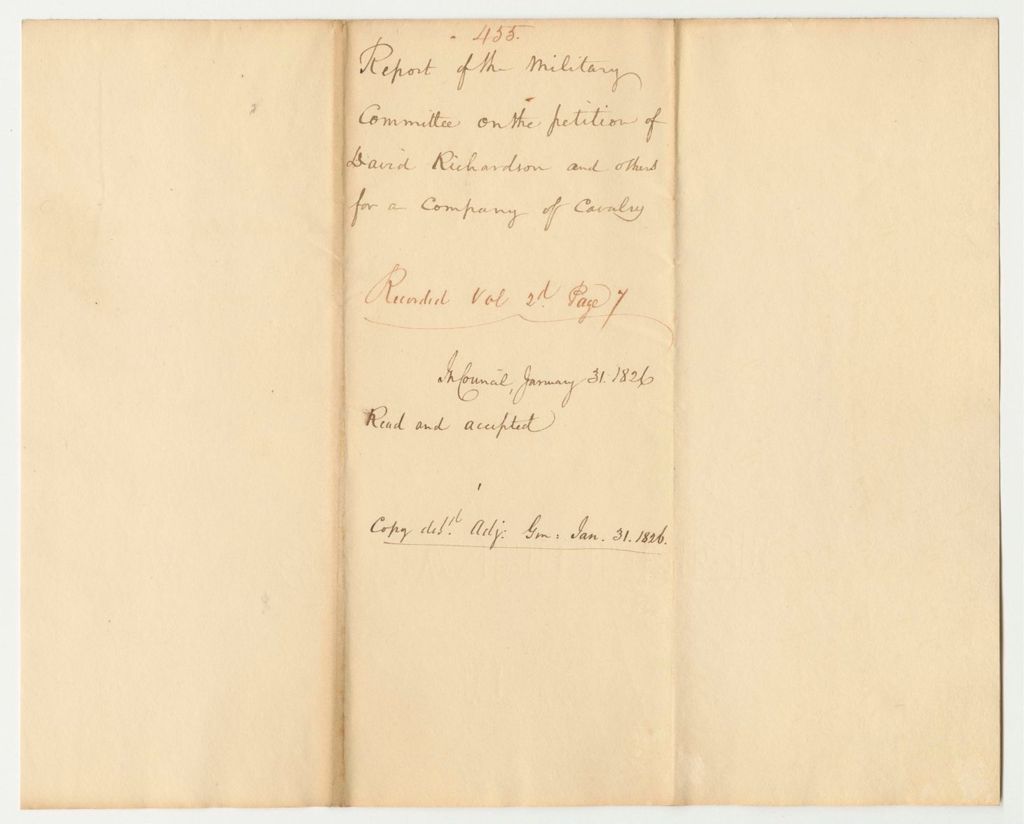 455.
Report of the Military
Committee on the petition of
David Richardson and others
for a Company of Cavalry
Recorded Vol 2d. Page 7
In Council, January 31. 1826
Read and accepted
Copy deld. Adj: Gen: Jan. 31. 1826.